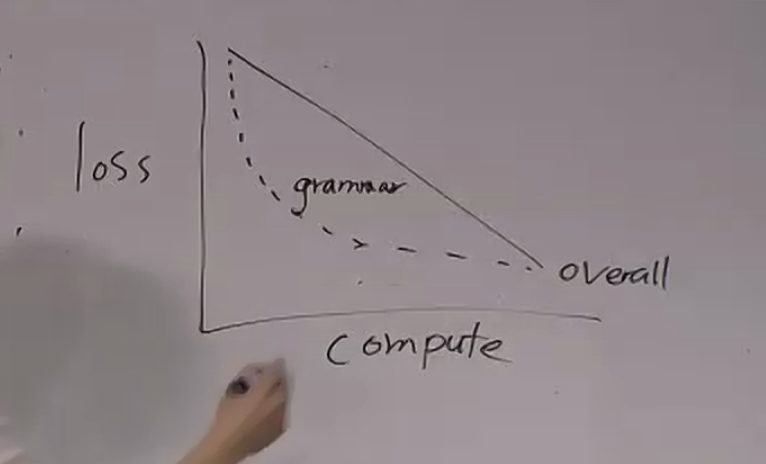 loss
grammar
overall
compute